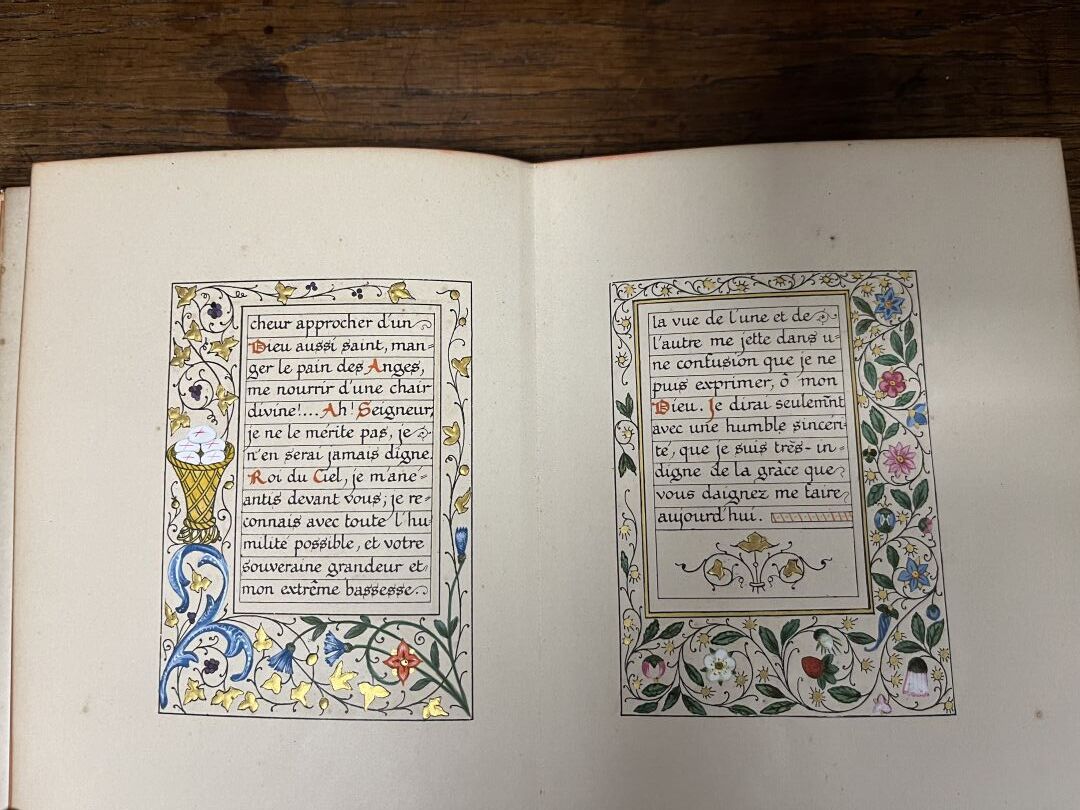 cheur approcher d'un
Dieu aussi saint, man-
ger le pain des Anges,
me nourrir d'une chair
divine!... Ah! Seigneur,
je ne le mérite pas, je
n'en serai jamais digne.
Roi du Ciel, je m'ané-
antis devant vous; je re-
connais avec toute l'hu
milité possible, et votre
souveraine grandeur et
mon extrême bassesse.
la vue de l'une et de
l'autre me jette dans u-
ne confusion que je ne
puis exprimer, ô mon
Dieu. Je dirai seulemnt
avec une humble sincéri-
té, que je suis très-in-
digne de la grâce que
vous daignez me faire
aujourd'hui.